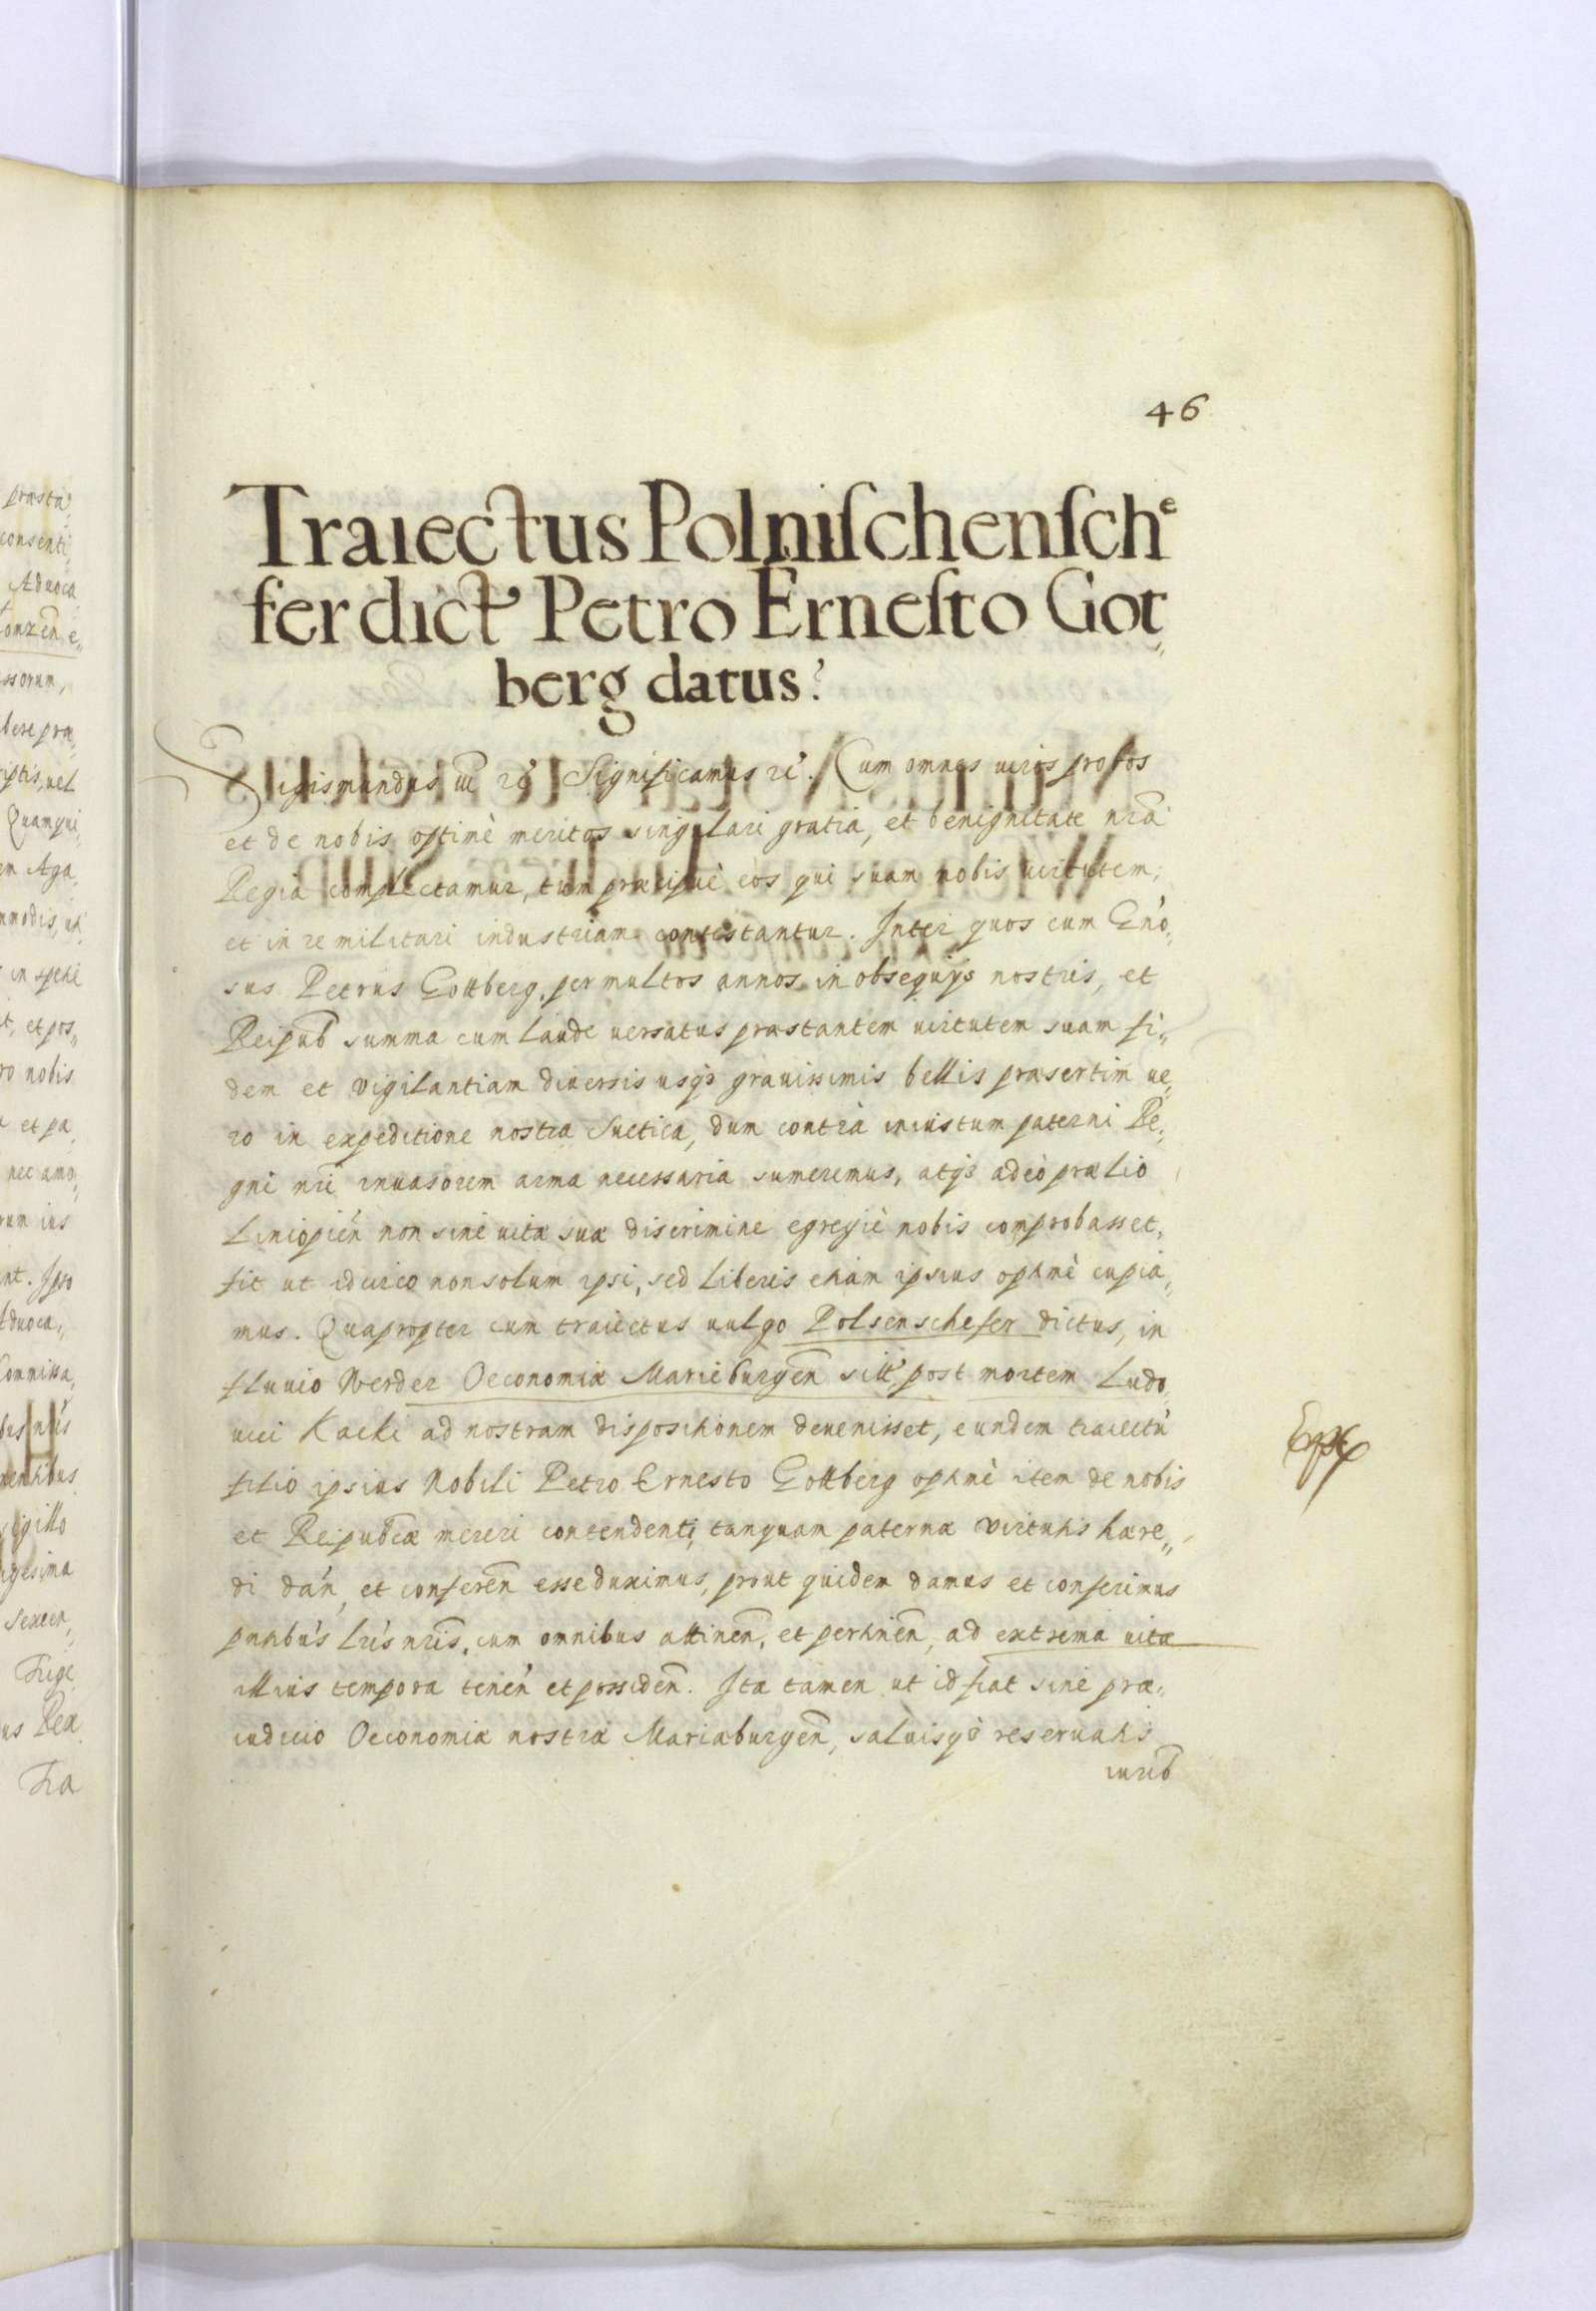 46
Traiectus Polniſchenſchᵉ
fer dict Petro Erneſto Got„
berg datus.
Sigismundus III rē Significamus rē. Cum omnes uiros probos
et de nobis optimè meritos singulari gratia, et benignitate nrā
Regia complectamur, tum præcipuè eos qui suam nobis uirtutem,
et in re militari industriam contestantur. Inter quos cum Gńo„
sus Petrus Gottberg, per multos annos in obsequijs nostris, et
Reipub summa cum laude uersatus præstantem uirtutem suam fi„
dem et vigilantiam diuersis usqz grauissimis bellis præsertim ue„
ro in expeditione nostra Suetica, dum contra iniustum paterni Re„
gni nrī inuasorem arma necessaria sumeremus, atqz adeò prælio
Linlopień non sine uitæ suæ discrimine egregiè nobis comprobasset,
fit ut idcirco non solum ipsi, sed liberis etiam ipsius optimè cupia„
mus. Quapropter cum traiectus uulgo Polsenschefer dictus, in
fluuio Werder Oeconomiæ Marieburgeñ sitt, post mortem Ludo„
uici Kacki ad nostram dispositionem deuenisset, eundem traiectū
filio ipsius Nobili Petro Ernesto Gottberg optimè item de nobis
et Reipubcæ mereri contendenti, tanquam paternæ virtutis hære„
di dań, et confereñ esse duximus, prout quidem damus et conferimus
pntibús lrís nrīs, cum omnibus attineñ, et pertineñ, ad extrema uitæ
illius tempora teneń et possideñ. Ita tamen ut id fiat sine præ„
iudicio Oeconomiæ nostræ Mariæburgeñ, saluisqz reseruatis
iurib